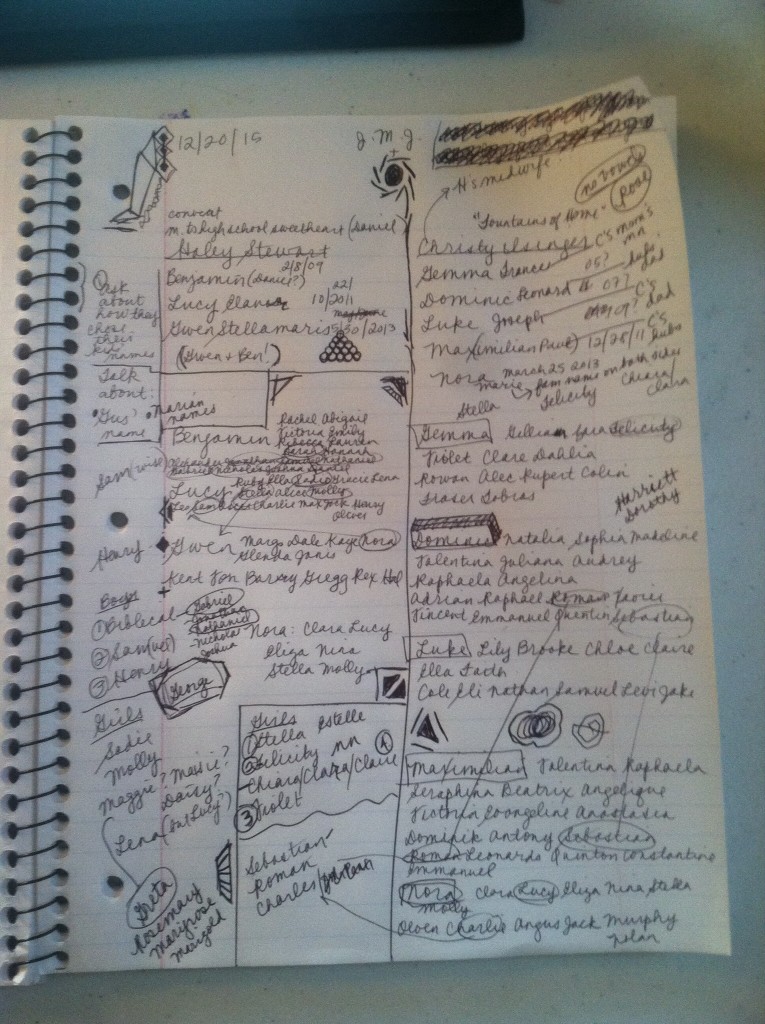 12/20/15
J.M.J.
convert
m. to high school sweetheart (Daniel)
Haley Stewart
2/8/09
Benjamin (Daniel?)
Lucy Eleanor 10/2011
Gwen Stellamaris 5/30/2013
(Gwen + Ben!)
Ask about how they chose their kids' names
Talk about:
• Gus' name
• Marian names
Benjamin
Rachel Abigail
Victoria Emily
Rebecca Lauren
Sarah Hannah
Sam (wise)
Lucy
Ruby Ella Sadie Gracie Lena
Stella Alice Molly
Leo Sam Oscar Charlie Max Jack Henry
Oliver
Henry
Gwen Margo Dale Kaye Nora
Glenda Janis
Kent Jon Barry Gregg Rex Hal
Boys
① Biblical
Gabriel
Jonathan
Nathaniel
Nicholas
Joshua
② Sam(uel)
③ Henry
George
Nora: Clara Lucy
Eliza Nina
Stella Molly
Girls
Sadie
Molly
Maggie? Maisie?
Daisy?
Lena (
Lucy?)
Greta
Rosemary
Maryrose
Marigold
Girls
① Stella Estelle
② Felicity nn
Chiara/Clara/Claire ④
③ Violet
Sebastian
Roman
Charles/
H's midwife
no vowel
Rose
"Fountains of Home"
Christy Isinger
C's mom's mn
Gemma Frances
05?
Dominic Leonard 07?
dad
Luke Joseph 09? C's dad
Max(imilian Paul) 12/28/11 C's hubs
Nora Marie March 25 2013
fam name on both sides
Stella Felicity Chiara/Clara
Gemma Gillian Lara Felicity
Violet Clare Dahlia
Rowan Alec Rupert Colin
Fraser Tobias
Harriett
Dorothy
Dominic Natalia Sophia Madeline
Valentina Juliana Audrey
Raphaela Angelina
Adrian Raphael Roman Xavier
Vincent Emmanuel Quentin Sebastian
Luke Lily Brooke Chloe Claire
Ella Faith
Cole Eli Nathan Samuel Levi Jake
Maximilian Valentina Raphaela
Seraphina Beatrix Angelique
Victoria Evangeline Anastasia
Dominik Antony Sebastian
Roman Leonardo Quinton Constantine
Emmanuel
Nora Clara Lucy Eliza Nina Stella
Molly
Owen Charlie Angus Jack Murphy
Nolan